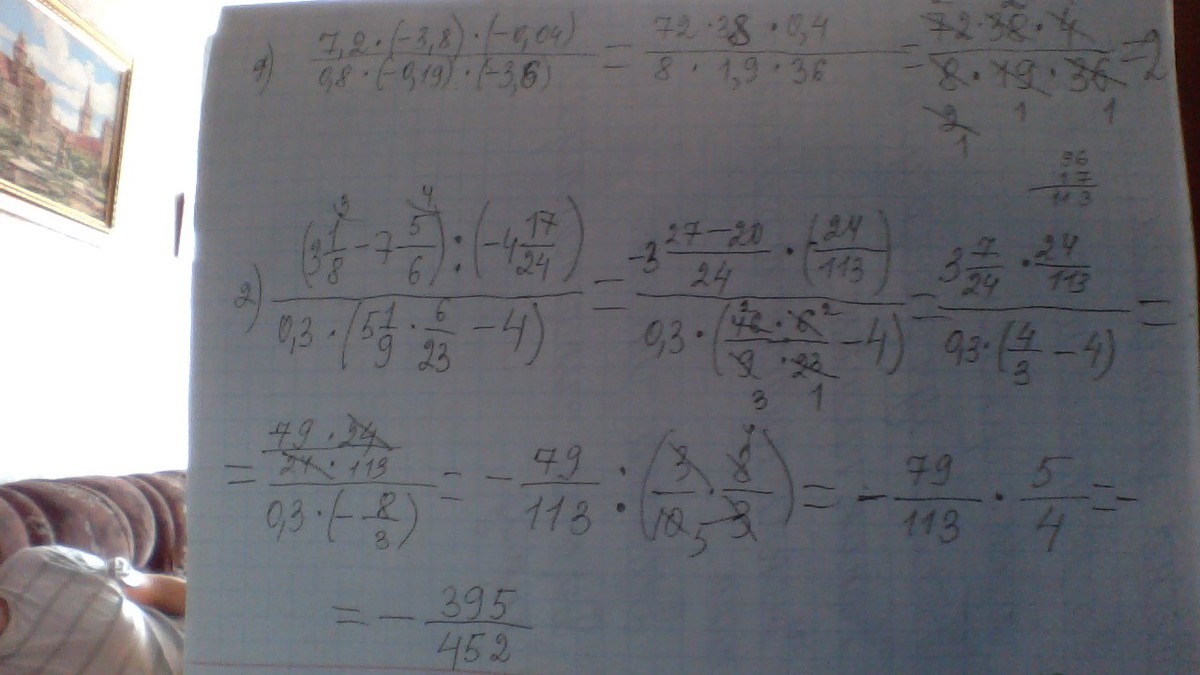 1) (7,2 · (-3,8) · (-0,04)) / (0,8 · (-0,19) · (-3,6)) = (72 · 38 · 0,4) / (8 · 1,9 · 36) = (72 · 38 · 4) / (8 · 19 · 36) = 2
2 1 1
36
17
113
2) ((3 1/8 - 7 5/6) : (-4 17/24)) / (0,3 · (5 1/9 · 6/23 - 4)) = (-3 (27-20)/24 · (-24/113)) / (0,3 · ((46 · 6)/(9 · 23) - 4)) = (3 7/24 · 24/113) / (0,3 · (4/3 - 4)) =
= ((79 · 24)/(24 · 113)) / (0,3 · (-8/3)) = - 79/113 : (3/10 · 8/3) = - 79/113 · 5/4 = -
= - 395/452